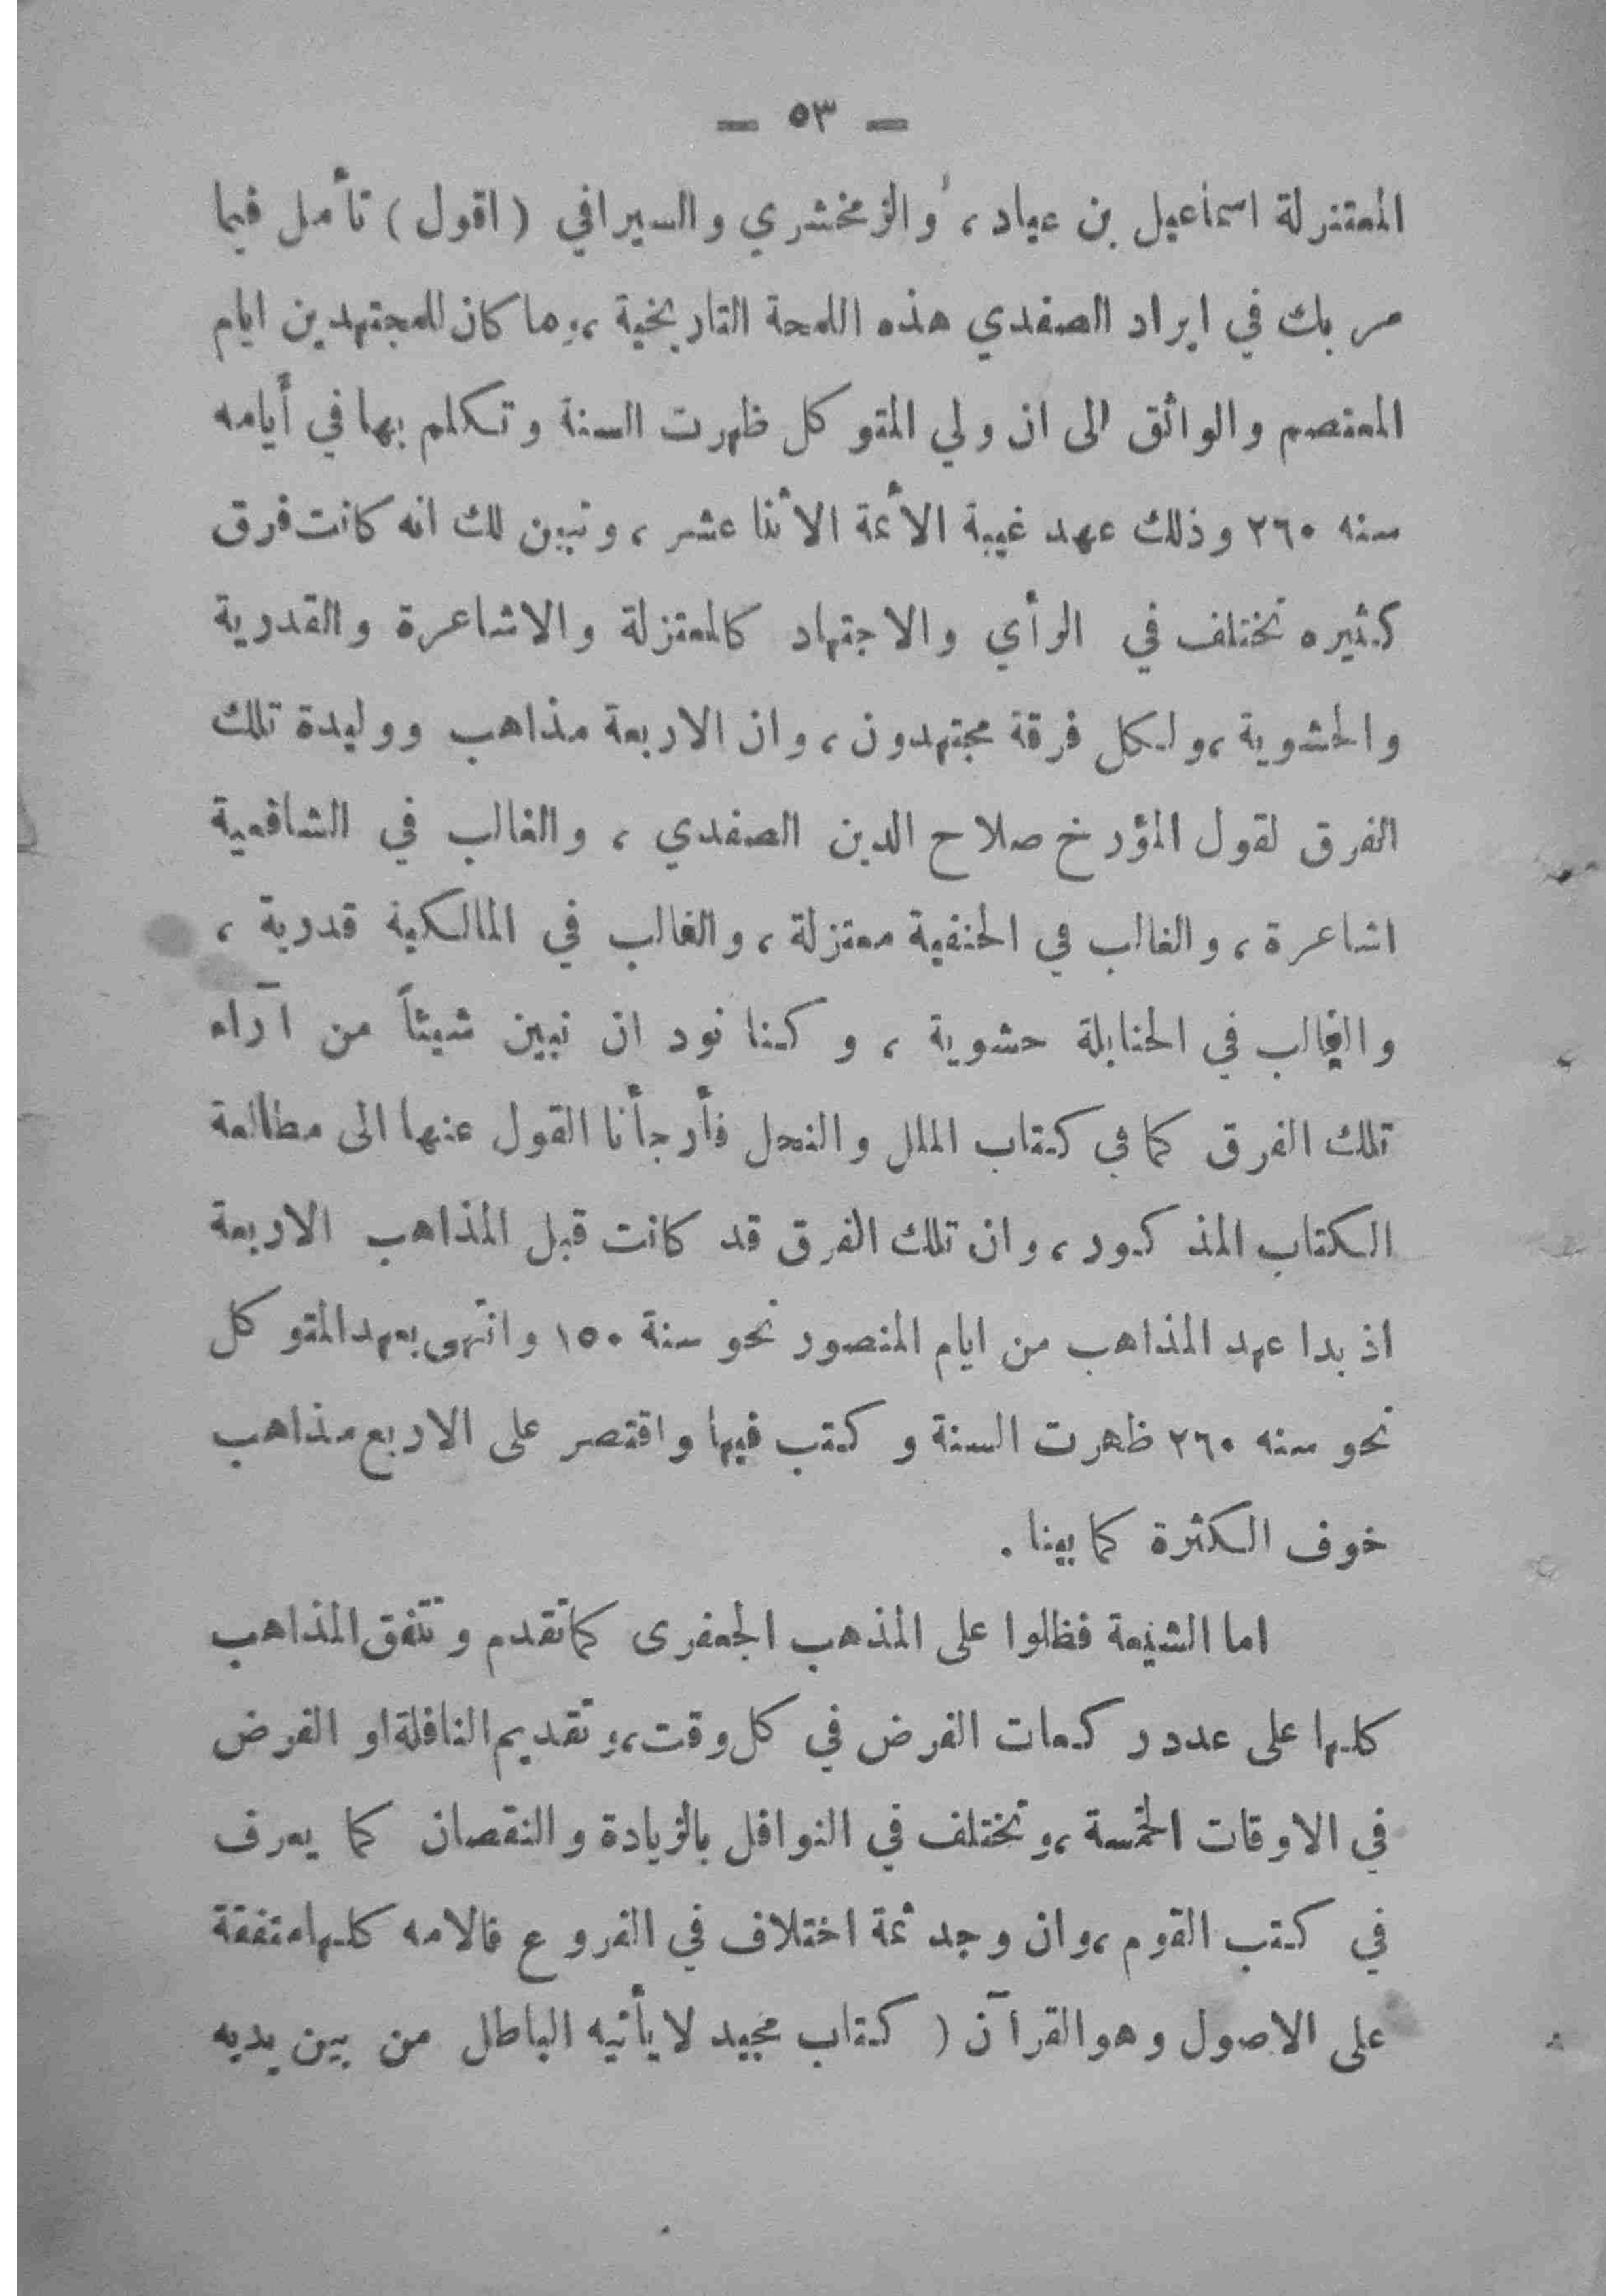 — ٥٣ —
المعتنزلة اسماعيل بن عياد، والزمخشري والسيرافي (اقول) تأمل فيما
مر بك في ايراد الصفدي هذه اللمحة التاريخية، وما كان للمجتهدين ايام
المعتصم والواثق الى ان ولي المتوكل ظهرت السنة وتكلم بها في أيامه
سنه ٢٦٠ وذلك عهد غيبة الأئمة الاثنا عشر، وتبين لك انه كانت فرق
كثيره تختلف في الرأي والاجتهاد كالمعتزلة والاشاعرة والقدرية
والحشوية، ولكل فرقة مجتهدون، وان الاربعة مذاهب ووليدة تلك
الفرق لقول المؤرخ صلاح الدين الصفدي، والغالب في الشافعية
اشاعرة، والغالب في الحنفية معتزلة، والغالب في المالكية قدرية،
والغالب في الحنابلة حشوية، وكنا نود ان نبين شيئاً من آراء
تلك الفرق كما في كتاب الملل والنحل فأرجأنا القول عنها الى مطالعة
الكتاب المذكور، وان تلك الفرق قد كانت قبل المذاهب الاربعة
اذ بدا عهد المذاهب من ايام المنصور نحو سنة ١٥٠ وانتهى بعهد المتوكل
نحو سنه ٢٦٠ ظهرت السنة وكتب فيها واقتصر على الاربع مذاهب
خوف الكثرة كما بينا.
اما الشيعة فظلوا على المذهب الجعفرى كما تقدم وتتفق المذاهب
كلها على عدد ركعات الفرض في كل وقت، وتقديم النافلة او الفرض
في الاوقات الخمسة، وتختلف في النوافل بالزيادة والنقصان كما يعرف
في كتب القوم، وان وجد ثمة اختلاف في الفروع فالامه كلها متفقة
على الاصول وهو القرآن (كتاب مجيد لا يأتيه الباطل من بين يديه